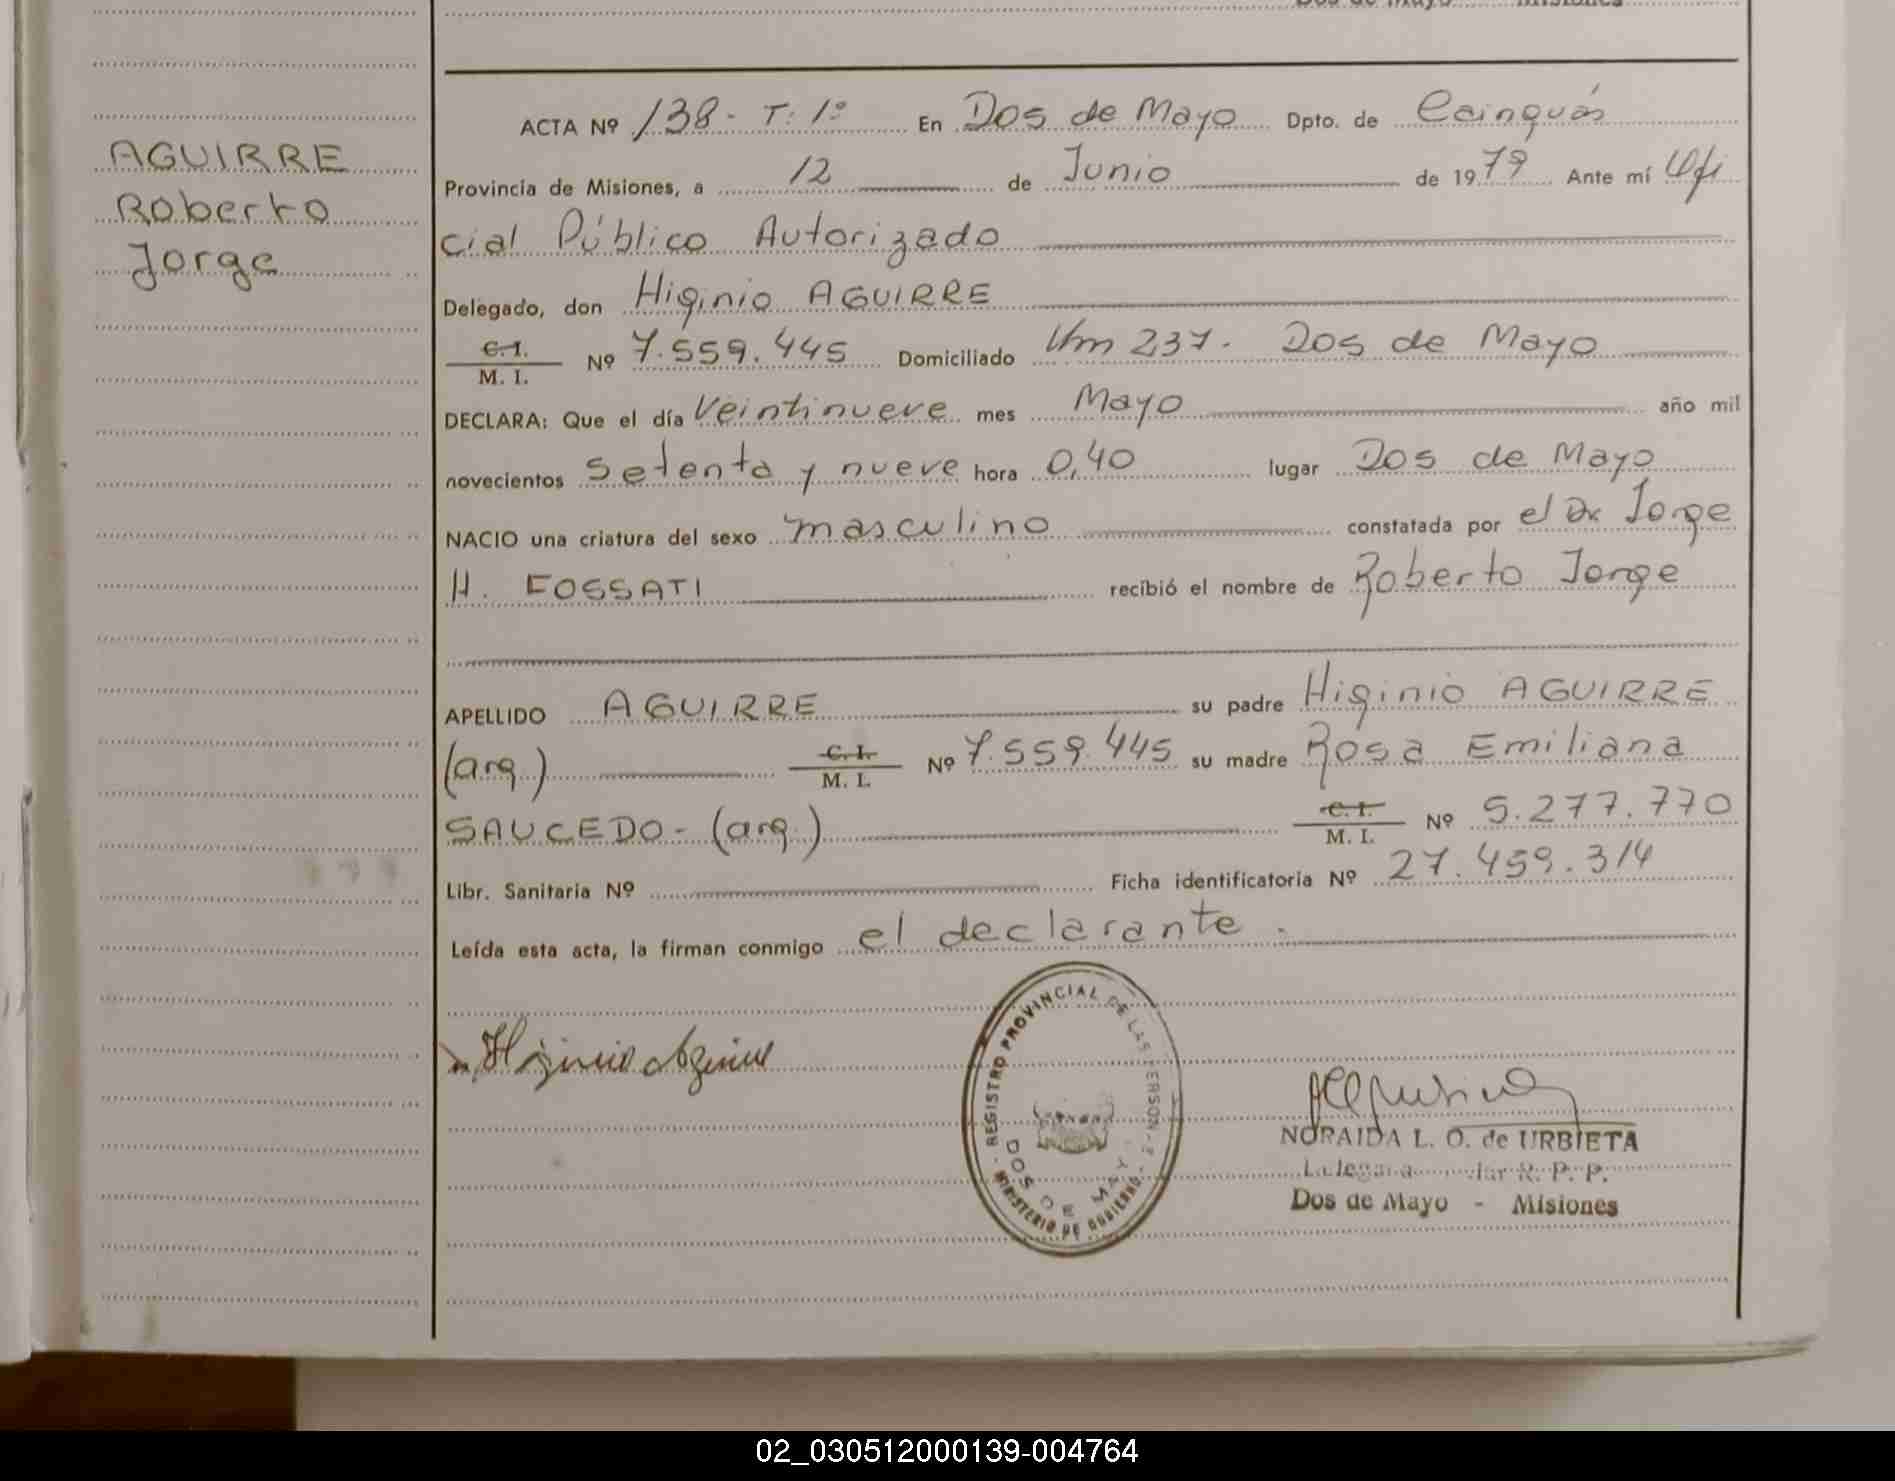 Dos de Mayo Misiones
AGUIRRE
Roberto
Jorge
ACTA Nº 138 - T: 1º En Dos de Mayo Dpto. de Cainguás
Provincia de Misiones, a 12 de Junio de 1979 Ante mí Ofi
cial Público Autorizado
Delegado, don Higinio AGUIRRE
C. I.
M. I. Nº 7.559.445 Domiciliado Km 237. Dos de Mayo
DECLARA: Que el día Veintinueve mes Mayo año mil
novecientos setenta y nueve hora 0,40 lugar Dos de Mayo
NACIO una criatura del sexo masculino constatada por el Dr. Jorge
H. FOSSATI recibió el nombre de Roberto Jorge
APELLIDO AGUIRRE su padre Higinio AGUIRRE
(arg.) C. I. M. I. Nº 7.559.445 su madre Rosa Emiliana
SAUCEDO - (arg.) C. I. M. I. Nº 5.277.770
Libr. Sanitaria Nº Ficha identificatoria Nº 27.459.314
Leída esta acta, la firman conmigo el declarante.
Higinio Aguirre
REGISTRO PROVINCIAL DE LAS PERSONAS
DOS DE MAYO
MINISTERIO DE GOBIERNO
NORAIDA L. O. de URBIETA
R. P. P.
Dos de Mayo - Misiones
02_030512000139-004764